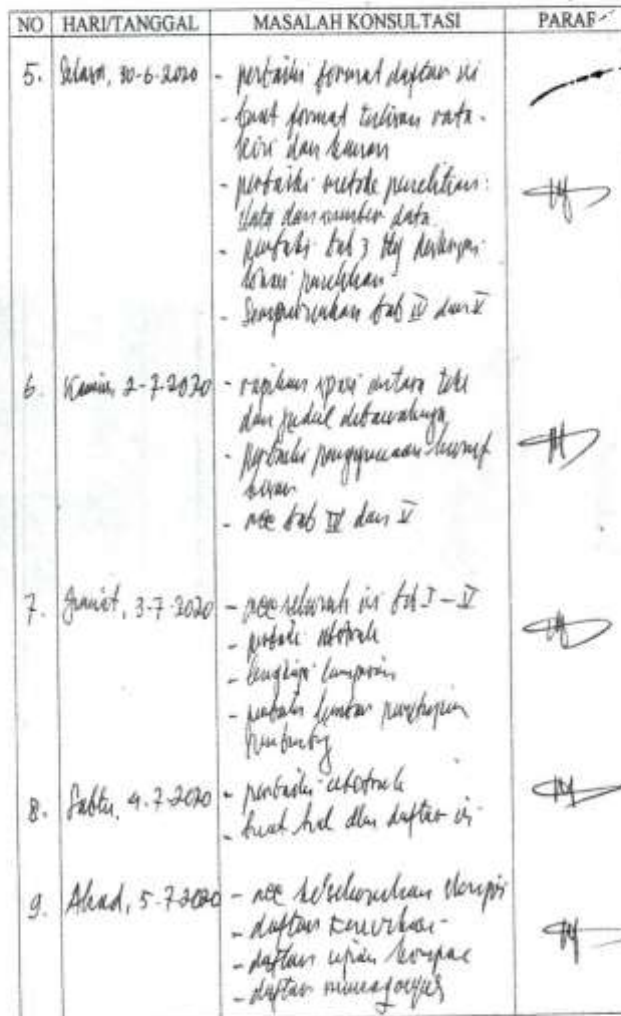 NO HARI/TANGGAL MASALAH KONSULTASI PARAF
5. Selasa, 30-6-2020 - perbaiki format daftar isi
- buat format tulisan rata
kiri dan kanan
- perbaiki metode penelitian:
data dan sumber data
- perbaiki bab 3 ttg
lokasi penelitian
- Sempurnakan bab IV dan V
6. Kamis, 2-7-2020 - rapikan spasi antara teks
dan judul dibawahnya
- perbaiki penggunaan huruf
- acc bab IV dan V
7. Jumat, 3-7-2020 - acc seluruh isi bab I - V
- perbaiki abstrak
- lengkapi lampiran
- perbaiki lembar
8. Sabtu, 4-7-2020 - perbaiki abstrak
- buat hal dlm daftar isi
9. Ahad, 5-7-2020 - acc keseluruhan skripsi
- daftar
- daftar ujian kompre
- daftar munaqasyah